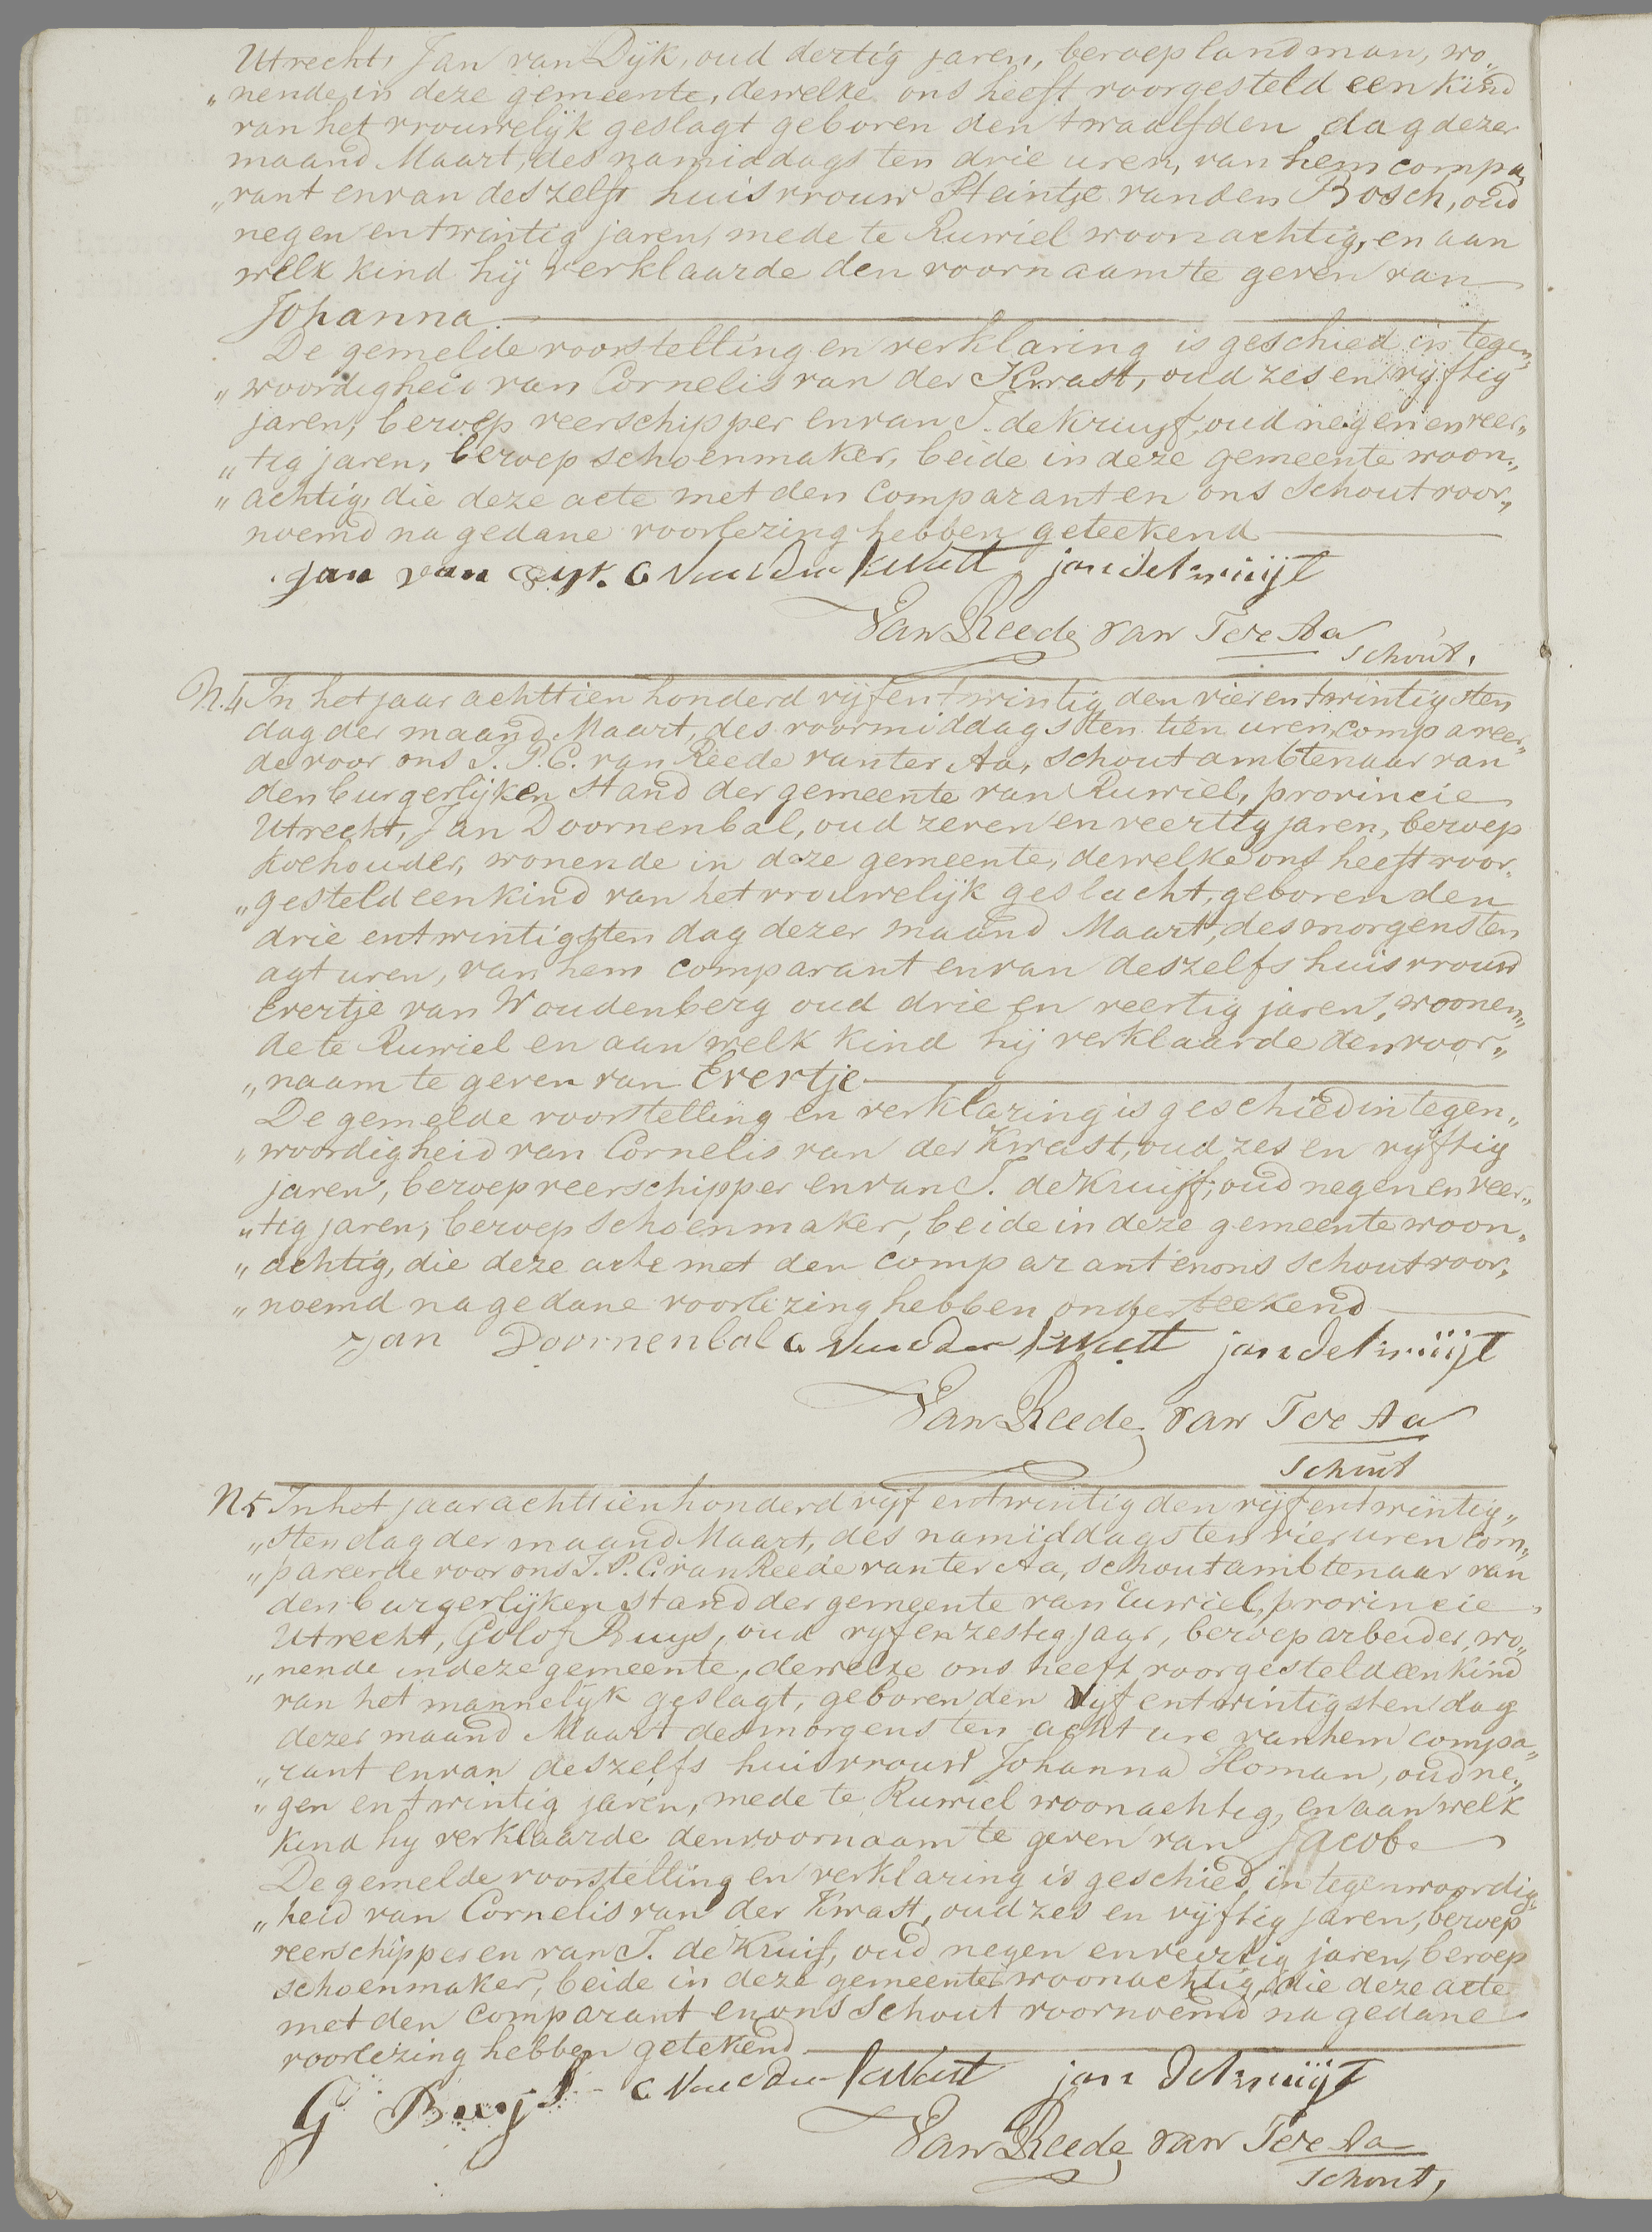 Utrecht, Jan van Dijk, oud dertig jaren, beroep landman, wo„
„nende in deze gemeente, dewelke ons heeft voorgesteld een kind
van het vrouwelijk geslagt geboren den twaalfden dag dezer
maand Maart, des namiddags ten drie uren, van hem compa„
„rant en van deszelfs huisvrouw Steintje van den Bosch, oud
negen en twintig jaren, mede te Ruwiel woonachtig, en aan
welk kind hij verklaarde den voornaam te geven van
Johanna
De gemelde voorstelling en verklaring is geschied in tegen„
„woordigheid van Cornelis van der Kwast, oud zes en vijftig
jaren, beroep veerschipper en van J. de Kruijf, oud negen en veer„
„tig jaren, beroep schoenmaker, beide in deze gemeente woon„
„achtig, die deze acte met den Comparant en ons Schout voor„
noemd na gedane voorlezing hebben geteekend
Jan van Dijk. C Van der Kwast jan de kruijf
Van Reede van Ter Aa
Schout,
N. 4 In het jaar achttien honderd vijfentwintig den vierentwintigsten
dag der maand Maart, des voormiddags ten tien uren, compareer„
de voor ons J. P. C. van Reede van ter Aa, Schout ambtenaar van
den burgerlijken Stand der gemeente van Ruwiel, provincie
Utrecht, Jan Doornenbal, oud zeven en veertig jaren, beroep
koehouder, wonende in deze gemeente, dewelke ons heeft voor„
„gesteld een kind van het vrouwelijk geslacht, geboren den
drie entwintigsten dag dezer maand Maart, des morgens ten
agt uren, van hem comparant en van deszelfs huisvrouw
Evertje van Woudenberg oud drie en veertig jaren, woonen„
de te Ruwiel en aan welk kind hij verklaarde den voor„
„naam te geven van Evertje
De gemelde voorstelling en verklaring is geschied in tegen„
„woordigheid van Cornelis van der Kwast, oud zes en vijftig
jaren, beroep veerschipper en van J. de Kruijff, oud negen en veer„
„tig jaren, beroep schoenmaker, beide in deze gemeente woon„
„achtig, die deze acte met den comparant en ons Schout voor„
„noemd na gedane voorlezing hebben onderteekend
Jan Doornenbal C Van der Kwast jan de kruijf
Van Reede van Ter Aa
Schout
N 5 In het jaar achttien honderd vijf entwintig den vijf entwintig„
„sten dag der maand Maart, des namiddags ten vier uren com„
„pareerde voor ons J. P. C. van Reede van ter Aa, Schout ambtenaar van
den burgerlijken Stand der gemeente van Ruwiel, provincie
Utrecht, Golof Buys, oud vyf en zestig jaar, beroep arbeider, wo„
„nende in deze gemeente, dewelke ons heeft voorgesteld een kind
van het mannelijk geslagt, geboren den vijf entwintigsten dag
dezer maand Maart des morgens ten acht ure van hem compa„
„rant en van deszelfs huisvrouw Johanna Homan, oud ne„
„gen en twintig jaren, mede te Ruwiel woonachtig, en aan welk
kind hy verklaarde den voornaam te geven van Jacob.
De gemelde voorstelling en verklaring is geschied in tegenwoordig„
„heid van Cornelis van der Kwast, oud zes en vijftig jaren, beroep
veerschipper en van J. de Kruif, oud negen en veertig jaren, beroep
schoenmaker, beide in deze gemeente woonachtig, die deze acte
met den comparant en ons Schout voornoemd na gedane
voorlezing hebben getekend
G Buys C Van der Kwast jan de kruijf
Van Reede van Ter Aa
Schout,